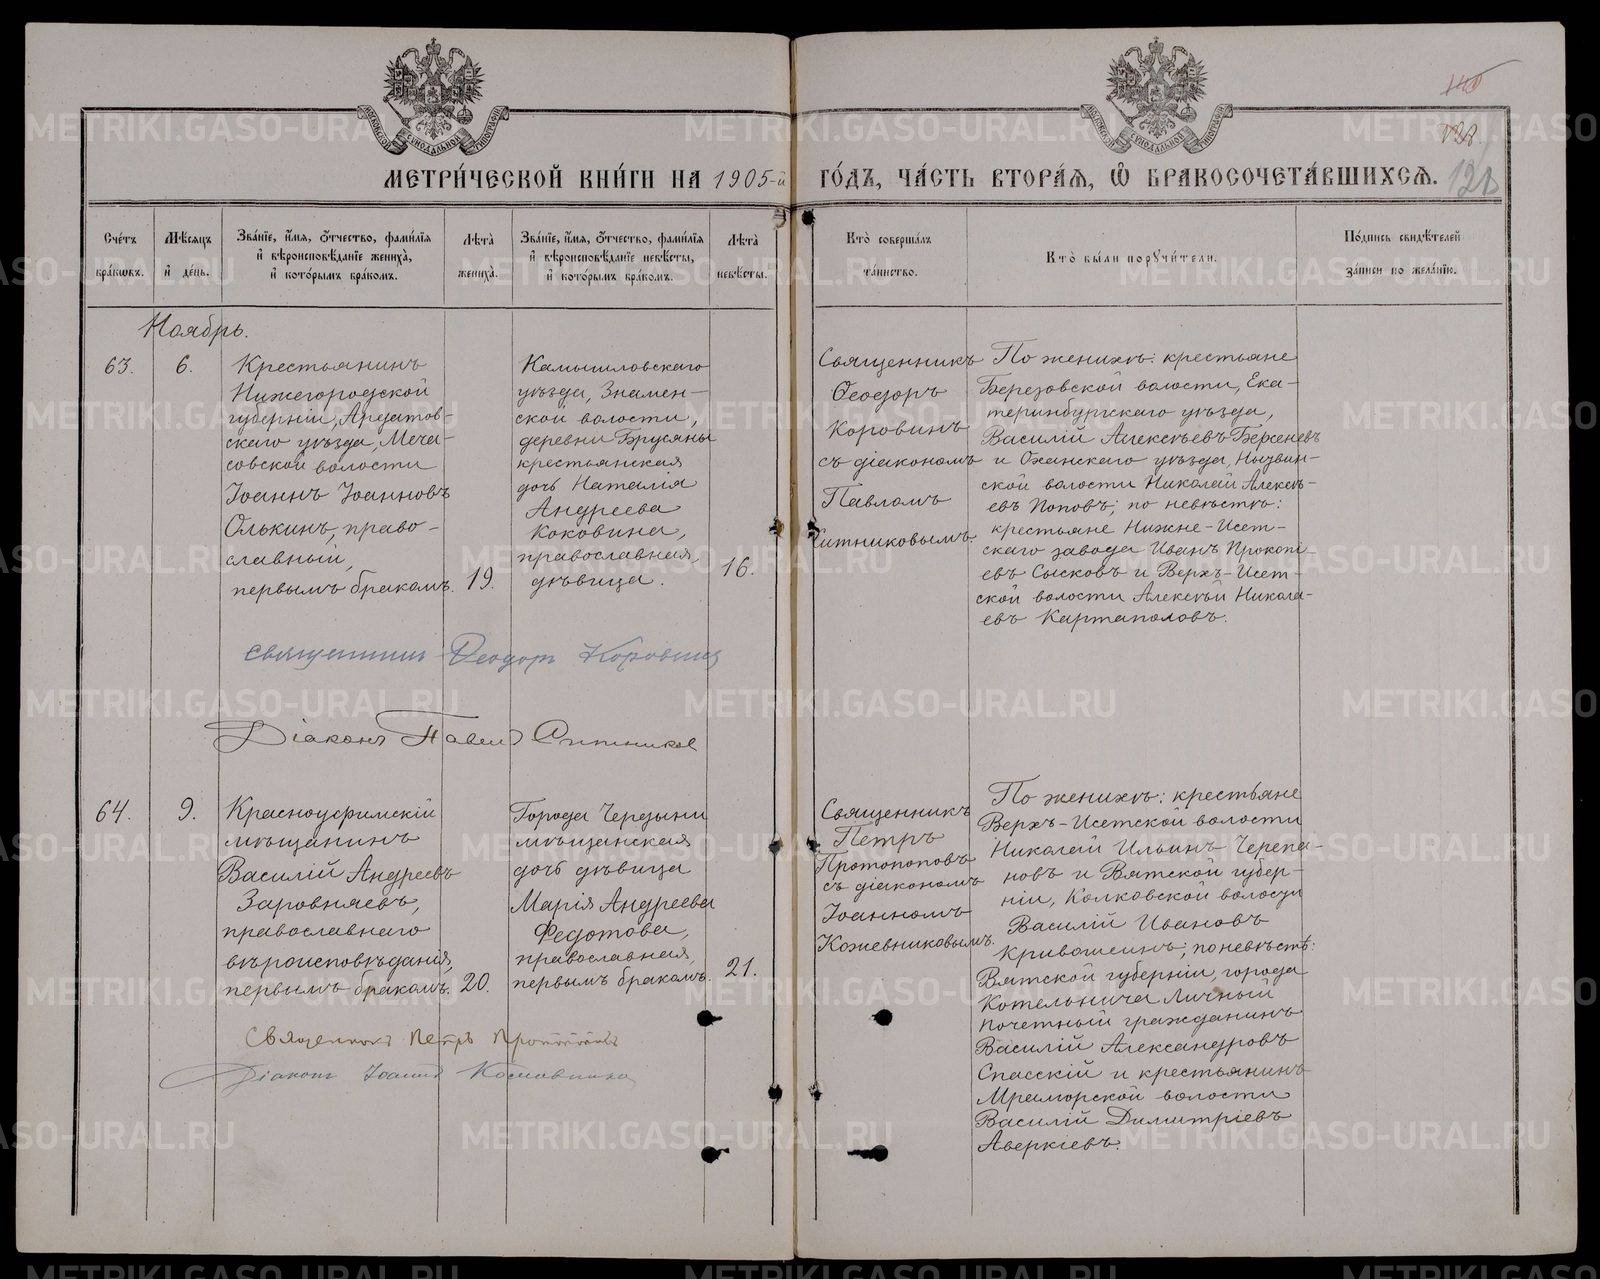 МЕТРИЧЕСКОЙ КНИГИ НА 1905-й ГОДЪ, ЧАСТЬ ВТОРАЯ, Ѡ БРАКОСОЧЕТАВШИХСЯ.
128
Счетъ браковъ.
Мѣсяцъ и день.
Званіе, имя, отчество, фамилія
и вѣроисповѣданіе жениха,
и которымъ бракомъ.
Лѣта
жениха.
Званіе, имя, отчество, фамилія
и вѣроисповѣданіе невѣсты,
и которымъ бракомъ.
Лѣта
невѣсты.
Кто совершалъ
таинство.
Кто были поручители.
Подпись свидѣтелей
записи по желанію.
Ноябрь.
63.
6.
Крестьянинъ
Нижегородской
губерніи, Ардатов-
скаго уѣзда, Меча-
совской волости
Іоаннъ Іоанновъ
Олькинъ, право-
славный,
первымъ бракомъ.
19.
Камышловскаго
уѣзда, Знамен-
ской волости,
деревни Брусяны
крестьянская
дочь Наталія
Андреева
Коковина,
православная,
дѣвица.
16.
Священникъ
Ѳеодоръ
Коровинъ
съ діакономъ
Павломъ
Ситниковымъ.
По женихѣ: крестьяне
Березовской волости, Ека-
теринбургскаго уѣзда,
Василій Алексѣевъ Берсеневъ
и Оханскаго уѣзда, Нытвин-
ской волости Николай Алексѣ-
евъ Поповъ; по невѣстѣ:
крестьяне Нижне-Исет-
скаго завода Иванъ Прокопі-
евъ Сысковъ и Верхъ-Исет-
ской волости Алексѣй Никола-
евъ Картаполовъ.
Священникъ Ѳеодоръ Коровинъ
Діаконъ Павелъ Ситниковъ
64.
9.
Красноуфимскій
мѣщанинъ
Василій Андреевъ
Заровняевъ,
православнаго
вѣроисповѣданія,
первымъ бракомъ.
20.
Города Чердыни
мѣщанская
дочь дѣвица
Марія Андреева
Федотова,
православная,
первымъ бракомъ.
21.
Священникъ
Петръ
Протопоповъ
съ діакономъ
Іоанномъ
Кожевниковымъ.
По женихѣ: крестьяне
Верхъ-Исетской волости
Николай Ильинъ Черепа-
новъ и Вятской губер-
ніи, Колковской волости
Василій Ивановъ
Кривошеинъ; по невѣстѣ:
Вятской губерніи, города
Котельнича личный
почетный гражданинъ
Василій Александровъ
Спасскій и крестьянинъ
Мраморской волости
Василій Димитріевъ
Аверкіевъ.
Священникъ Петръ Протопоповъ
Діаконъ Іоаннъ Кожевниковъ
METRIKI.GASO-URAL.RU